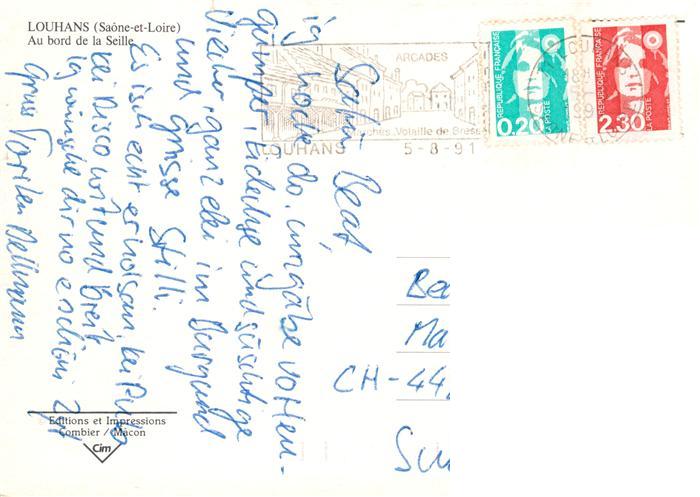 LOUHANS (Saône-et-Loire)
Au bord de la Seille
ARCADES
Volaille de Bresse
LOUHANS 5-8-91
REPUBLIQUE FRANÇAISE
LA POSTE
0,20
REPUBLIQUE FRANÇAISE
LA POSTE
2,30
Salü Beat,
ig hocke do, umgäbe vo Heu-
gümper, Eidechse und süschtige
Viecher, ganz elei im Burgund
und grosse Stilli.
Es isch echt erholsam, kei Pub
kei Disco wit und breit
Ig wünsche dir no e schöni Zyt
Gruss Torsten Bellmann
Be
Ma
CH-44
Editions et Impressions
Combier / Macon
Cim